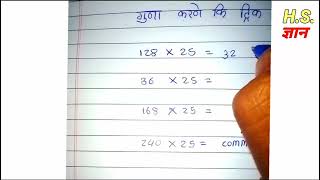 H.S.
ज्ञान
गुणा करणे कि ट्रिक
128 × 25 = 32
36 × 25 =
168 × 25 =
240 × 25 = comm